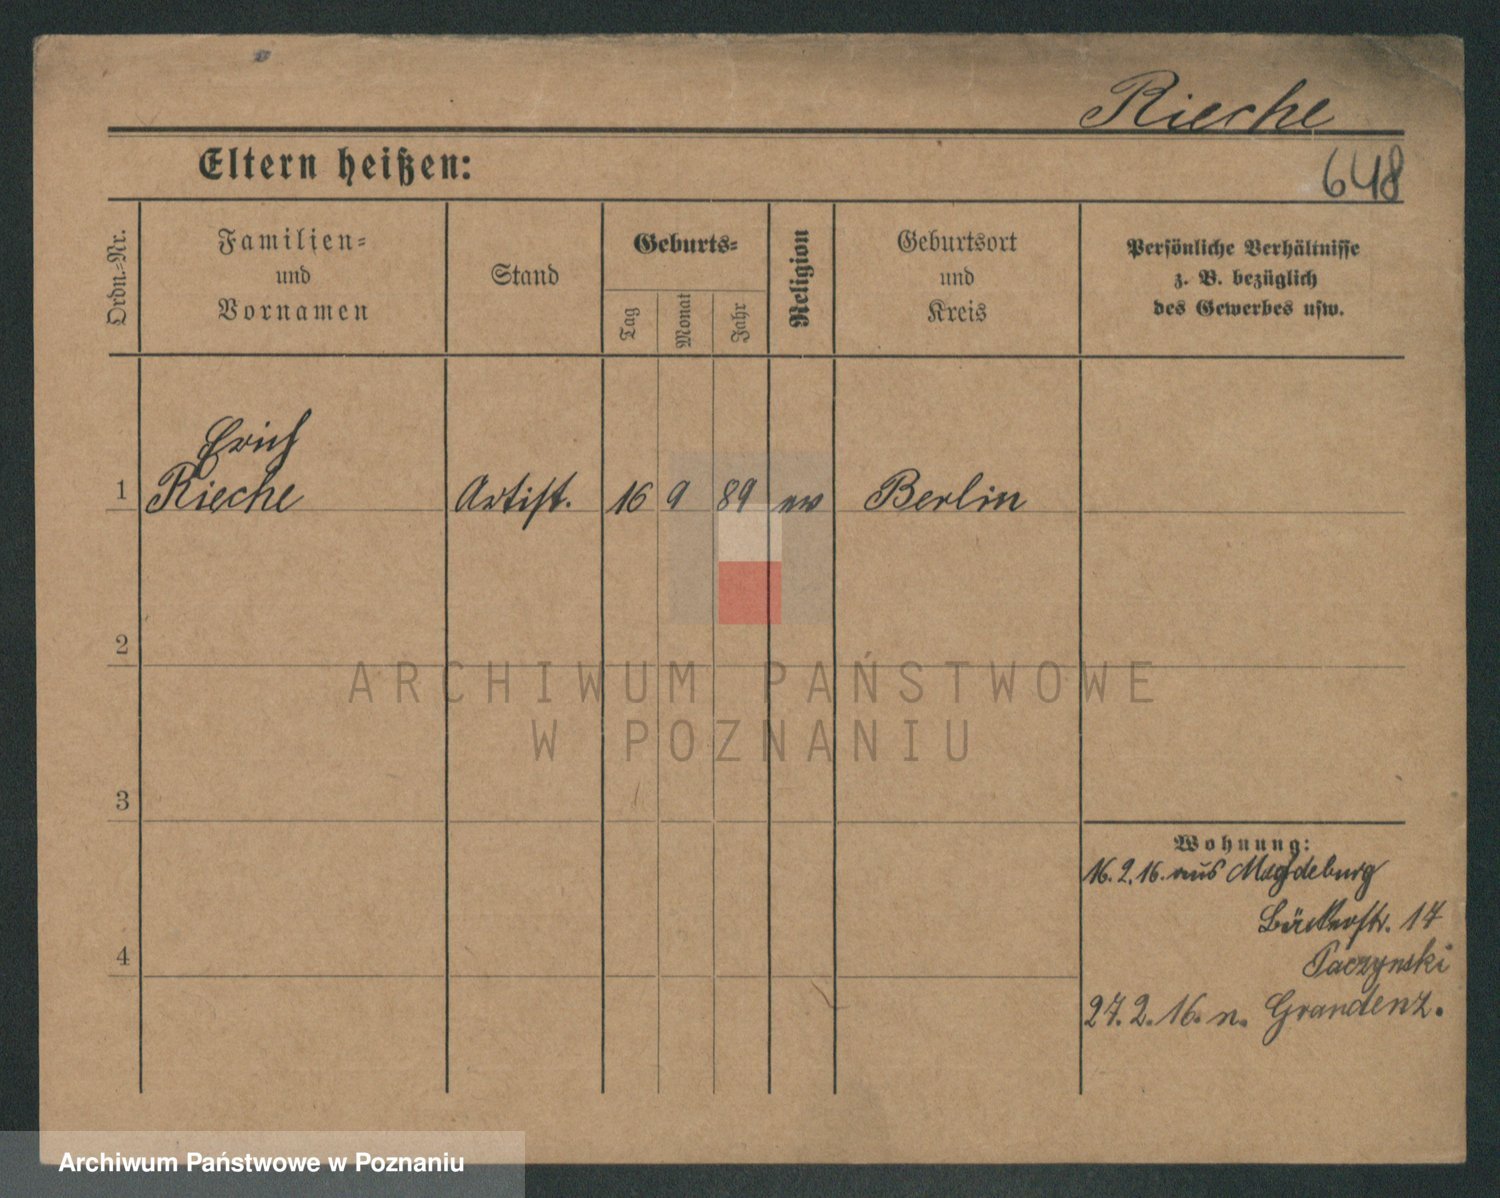 Rieche
Eltern heißen:
648
Ordn.-Nr.
Familien-
und
Vornamen
Stand
Geburts-
Tag
Monat
Jahr
Religion
Geburtsort
und
Kreis
Persönliche Verhältnisse
z. B. bezüglich
des Gewerbes usw.
Erich
1 Rieche Artist. 16 9 89 ev Berlin
2
ARCHIWUM PAŃSTWOWE
W POZNANIU
3
Wohnung:
16.2.16. aus Magdeburg
Bäckerstr. 17
4
Paczynski
27.2.16. n. Graudenz.
Archiwum Państwowe w Poznaniu